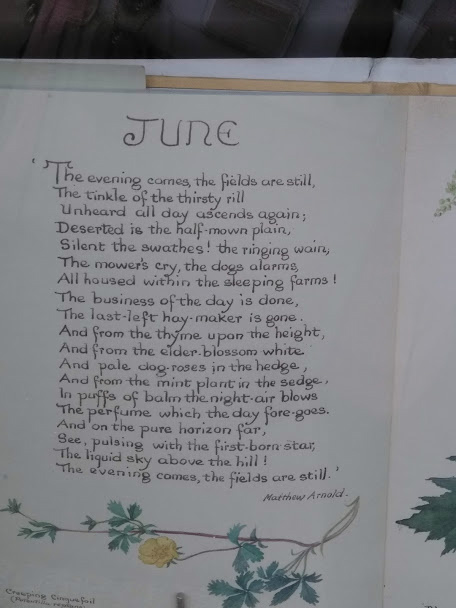 JUNE
'The evening comes, the fields are still,
The tinkle of the thirsty rill
Unheard all day ascends again;
Deserted is the half-mown plain,
Silent the swathes! the ringing wain,
The mower's cry, the dogs alarms,
All housed within the sleeping farms!
The business of the day is done,
The last-left hay-maker is gone.
And from the thyme upon the height,
And from the elder-blossom white
And pale dog-roses in the hedge,
And from the mint plant in the sedge,
In puffs of balm the night-air blows
The perfume which the day fore-goes.
And on the pure horizon far,
See, pulsing with the first-born star,
The liquid sky above the hill!
The evening comes, the fields are still.'
Matthew Arnold.
Creeping Cinquefoil